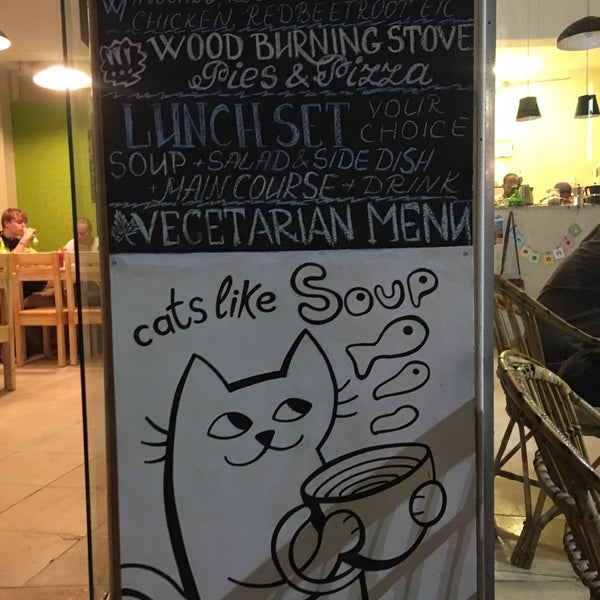 CHICKEN, REDBEETROOT ETC
WOOD BURNING STOVE
Pies & Pizza
LUNCH SET YOUR CHOICE
SOUP + SALAD & SIDE DISH
+ MAIN COURSE + DRINK
VEGETARIAN MENU
cats like SOUP